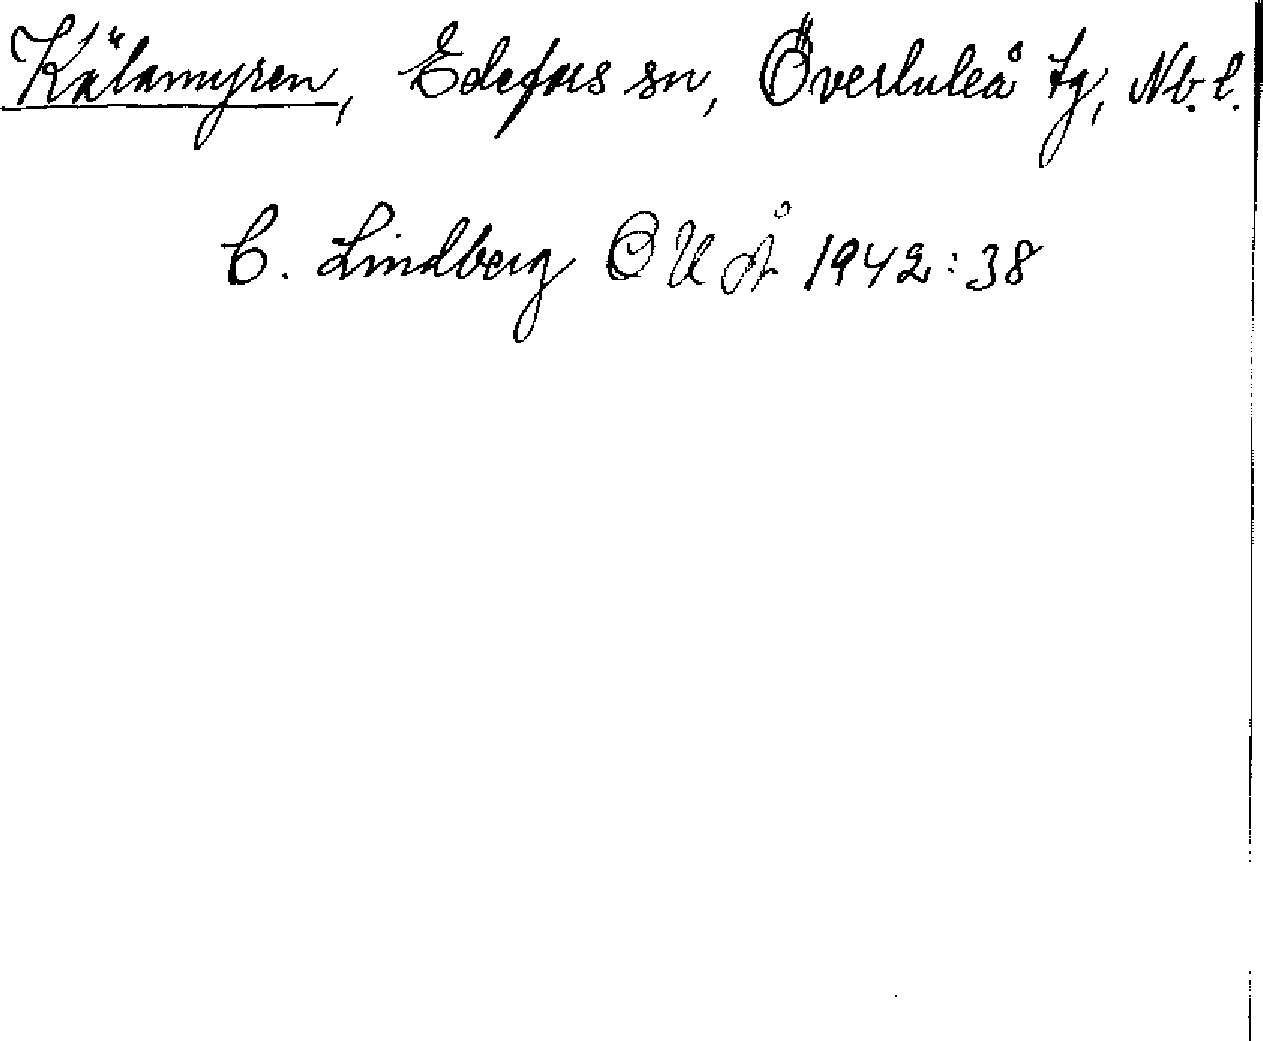 Kälamyren, Edefors sn, Överluleå tg, Nb. l.
C. Lindberg OUÅ 1942:38